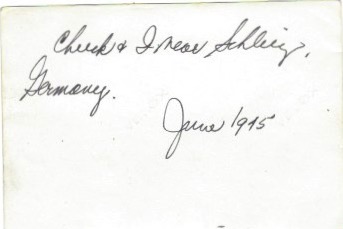 Chuck & I near Schleiz,
Germany.
June 1945